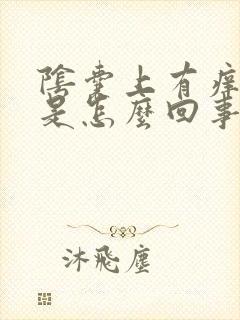 陰囊上有痒
是怎麼回事
沐飛塵